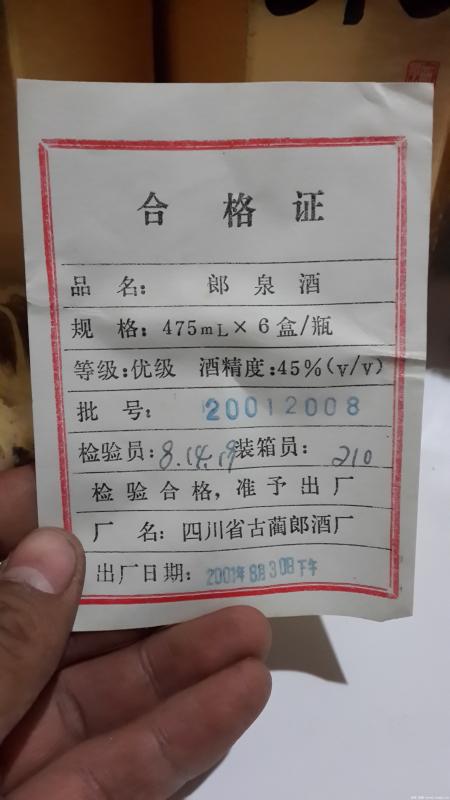 合格证
品名：郎泉酒
规格：475mL×6盒/瓶
等级：优级 酒精度：45%(v/v)
批号：20012008
检验员：8.14.19 装箱员：210
检验合格，准予出厂
厂名：四川省古蔺郎酒厂
出厂日期：2001年8月30日下午